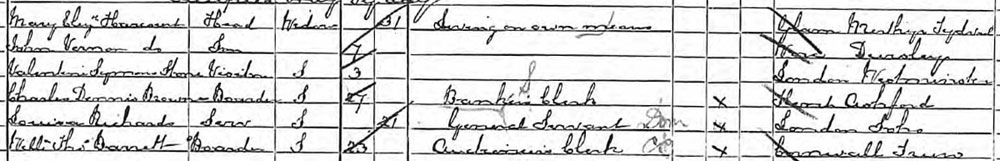 Mary Eliz. Harcourt Head Widow 31 Living on own means Glam Merthyr Tydvil
John Vernon do Son 7 Dursley
Valentine Seymour Visitor S 3 London Westminster
Charles Dennis Brown Boarder S 27 Banker's Clerk x
Louisa Richards Serv S 21 General Servant Dom x London Soho
Barrett Boarder S 23 Auctioneer's Clerk x Cornwall Truro